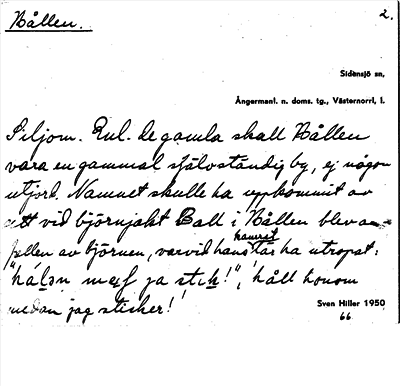 Bållen. 2.
Sidensjö sn,
Ångermanl. n. doms. tg., Västernorrl, l.
Siljom. Enl. de gamla skall Bållen
vara en gammal självständig by, ej någon
utjord. Namnet skulle ha uppkommit av
att vid björnjakt Ball i Bållen blev an-
fallen av björnen, varvid hans kamrat här ha utropat:
"hålən ja stik!", håll honom
medan jag sticker!
Sven Hiller 1950
66.